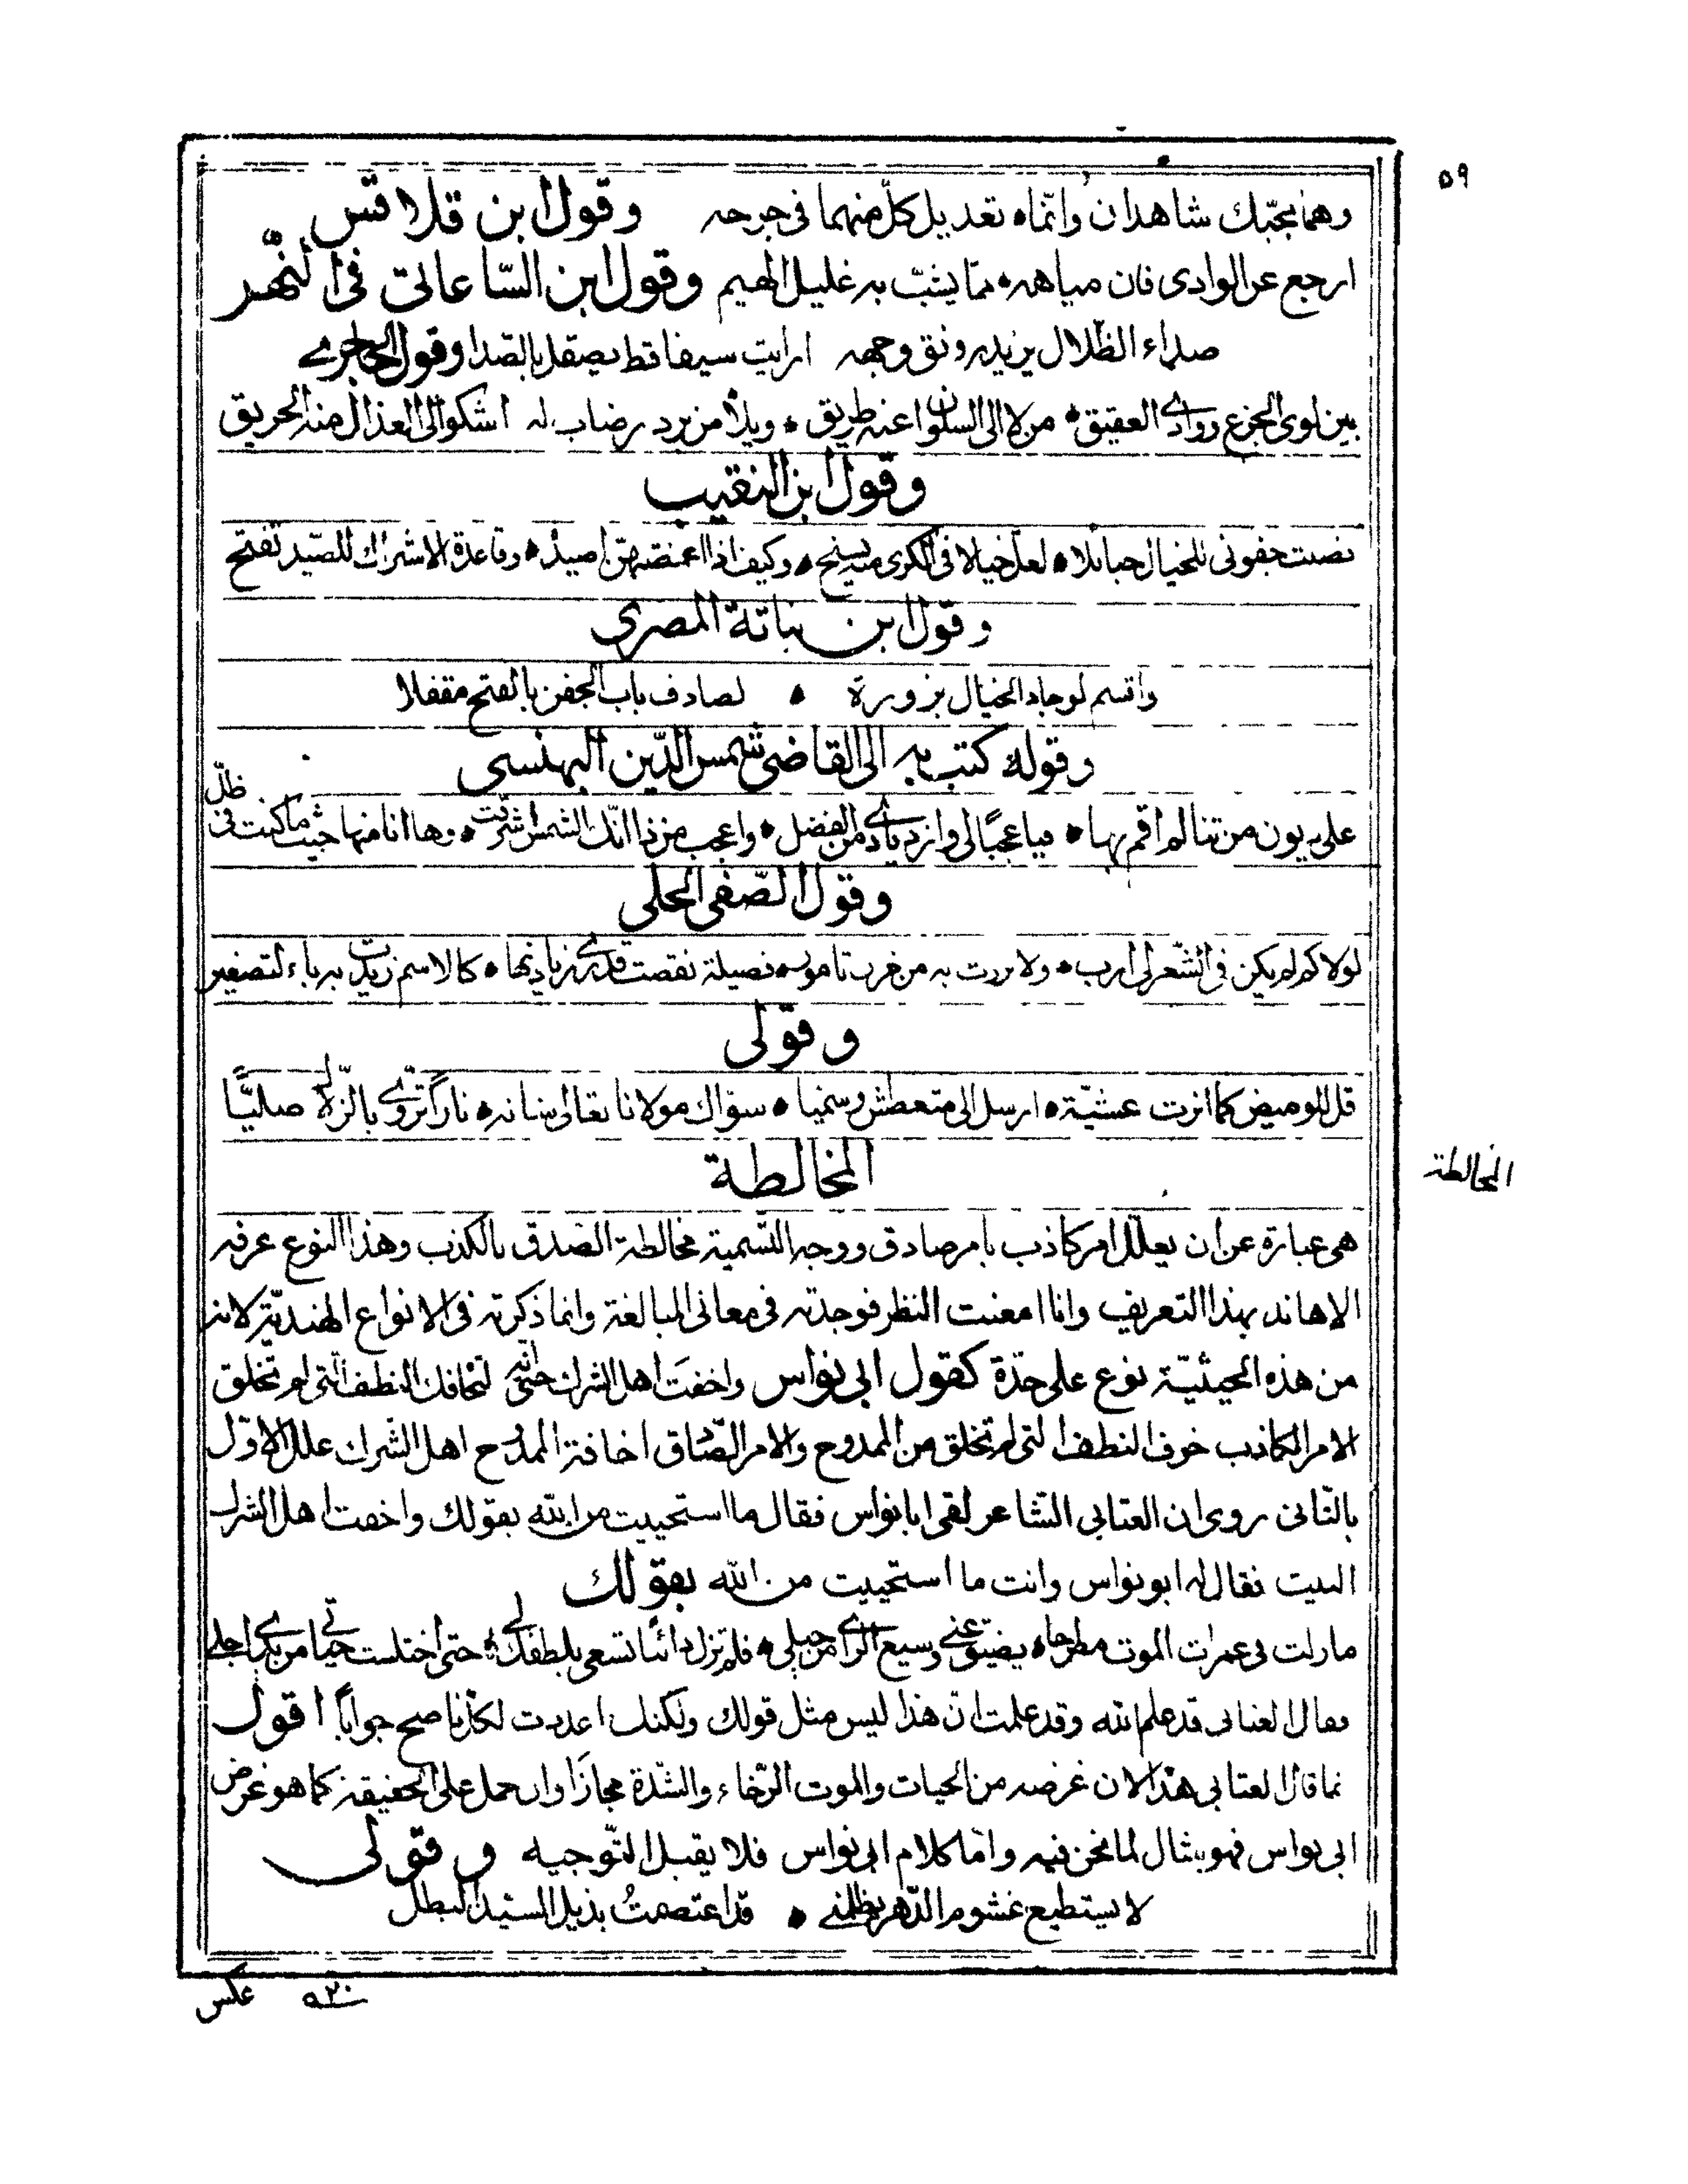 ٥٩
وهما بحبّك شاهدان وانّما ٥ تعديل كلّ منهما فى جرحه وقول ابن قلاقس
ارجع عن الوادى فان مياهه ٥ ممّا يشبّ به غليل الهيم وقول ابن السّاعاتى فى النّهر
صداء الظّلال يزيد رونق وجهه ارايت سيفا قط يصقل بالصّدا وقول الحاجرى
بين لوى الجزع ووادى العقيق ٥ من لا الى السلوان عنه طريق ٥ ويلاٴ من برد رضاب له اشكو الى العذال منه الحريق
وقول ابن النقيب
نصبت جفونى للخيال حبائلا ٥ لعل خيالا فى الكرى منه يسنح ٥ وكيف اذا اغمضتهن اصيد ٥ وقاعدة الاشراك للصّيد تفتح
وقول ابن نباتة المصرى
واقسم لو جاد الخيال بزورة ٥ لصادف باب الجفن بالفتح مقفلا
وقوله كتب به الى القاضى شمس الدّين البهنسى
على ديون من ثنا لم اقم بها ٥ فيا عجبًا لى وازديادى من الفضل ٥ واعجب من ذا انّك الشمس اشرقت ٥ وها انا منها حيث ما كنت فى ظلّ
وقول الصّفى الحلى
لولاكم لم يكن فى الشّعر لى ارب ٥ ولا بررت به من غرب تامور ٥ فضيلة نقصت قدرى زيادتها ٥ كالاسم زيدت به ياء لتصغير
وقولى
قل للوميض كما انرت عشيّة ٥ ارسل الى متعطش وسميا ٥ سؤاك مولانا تعالى شانه ٥ نارًا تروّى بالزّلال صليًّا
المخالطة
المخالطة
هى عبارة عن ان يعلّل امر كاذب بامر صادق ووجه التّسمية مخالطة الصّدق بالكذب وهذا النوع عرفه
الاهاند بهذا التعريف وانا امعنت النظر فوجدته فى معانى المبالغة وانما ذكرته فى الانواع الهنديّة لانه
من هذه الحيثيّة نوع على حدّة كقول ابى نواس واخفت اهل الشرك حتى انّه لتخافك النطف التى لم تخلق
الامر الكاذب خوف النطف التى لم تخلق من الممدوح والامر الصّادق اخافة الممدوح اهل الشّرك علل الاوّل
بالثّانى روى ان العتابى الشاعر لقى ابا نواس فقال ما استحييت من الله بقولك واخفت اهل الشرك
البيت فقال له ابو نواس وانت ما استحييت من الله بقولك
مازلت فى غمرات الموت مطرحا ٥ يضيق عنى وسيع الراى من حيلى ٥ فلم تزل دائبا تسعى بلطفك لى ٥ حتى اختلست حياتى من يدى اجلى
فقال العتابى قد علم الله وقد علمت انّ هذا ليس مثل قولك ولكنك اعددت لكل ناصح جوابًا اقول
نما قال العتابى هذا لان غرضه من الحيات والموت الرّخاء والشّدة مجازًا وان حمل على الحقيقة كما هو غرض
ابى نواس فهو مثال لما نحن فيه وامّا كلام ابى نواس فلا يقبل التّوجيه وقولى
لا يستطيع غشوم الدّهر يظلمنى ٥ قد اعتصمتُ بذيل السيّد البطل
٥٢٠ عكس